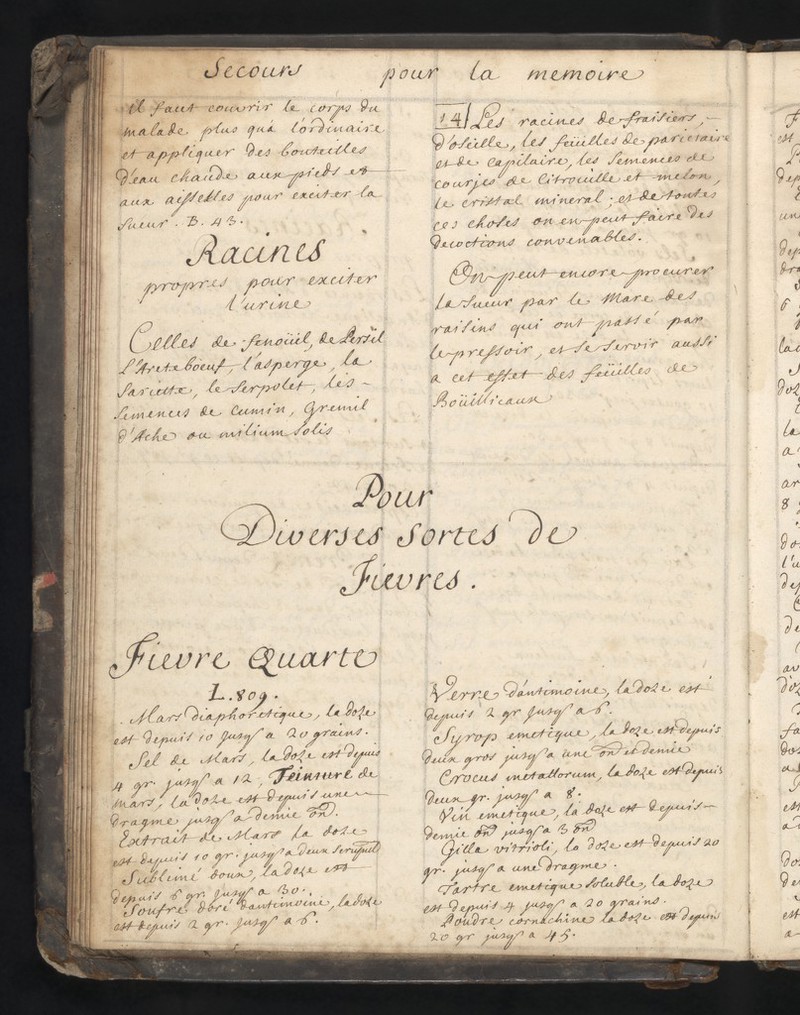 Secours pour la memoire
il faut couvrir le corps du
malade plus qu'a l'ordinaire
et appliquer des bouteilles
d'eau chaude aux pieds et
aux aisselles pour exciter la
sueur. B. 43.
Racines
propres pour exciter
l'urine
Celles de fenoüil, de Persil
l'Areteboeuf, l'asperge, la
Sariette, le Serpolet, les
semences de Cumin, Gremil
d'Ache ou milium Solis
14 Les racines de fraisiers,
d'oseille, les feüilles de parietaire
et de Capilaire, les semences de
courjes de Citrouille et melon,
le cristal mineral; et de toutes
ces choses on en peut faire des
decoctions convenables.
On peut encore procurer
la Sueur par le Mare des
raisins qui ont passé par
le pressoir, et se servir aussi
a cet effet des feüilles de
Boüillicaux
Pour
Diverses Sortes De
Fievres.
Fievre Quarte
L. 809.
Mars Diaphoretique, la doze
est depuis 10 jusq'a 20 grains.
Sel de Mars, la doze est depuis
4 gr. jusq'a 12, Teinture de
Mars, la Doze est depuis une
Dragme jusq'a demie on.
Extrait de Mars la doze
est depuis 10 gr. jusq'a deux Scrupull
Sublimé doux, la doze est
depuis 6 gr. jusq'a 30.
Soufre doré d'antimoine, la doze
est depuis 2 gr. jusq'a 6.
Verre d'antimoine, la doze est
depuis 2 gr jusq'a 6.
Syrop emetique, la doze est depuis
deux gros jusq'a une on et demie
Crocus metallorum, la doze est depuis
deux gr. jusq'a 8.
Vin emetique, la doze est depuis
demie on jusq'a 3 on
Gilla vitrioli, la doze est depuis 20
gr. jusq'a une dragme.
Tartre emetique soluble, la doze
est depuis 4 jusq'a 20 grains.
Poudre cornachine la doze est depuis
20 gr jusq'a 45.